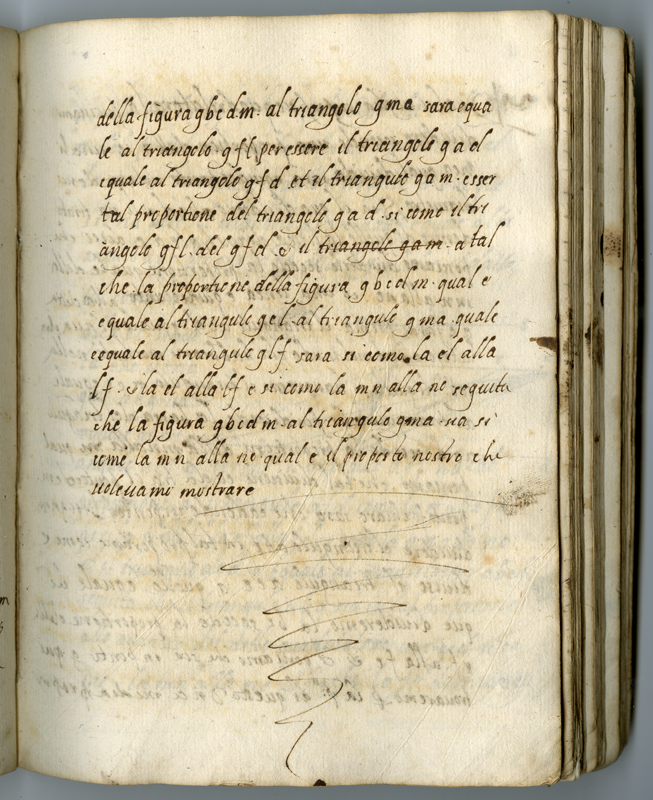 della figura gbcdm. al triangolo gma sara equa
le al triangolo gfl per essere il triangolo gad
equale al triangolo gfd et il triangulo gam. esser
tal proportione del triangolo gad. si come il tri
angolo gfl. del gfd. e il triangolo gam. a tal
che. la proportione della figura gbcdm. qual e
equale al triangulo gel. al triangulo gma. quale
eequale al triangulo glf sara si como la el alla
lf. e la el alla lf e si como la mn alla no seguita
che la figura gbcdm. al triangulo gma. ua si
come la mn alla no qual e il proposto nostro che
uoleuamo mostrare